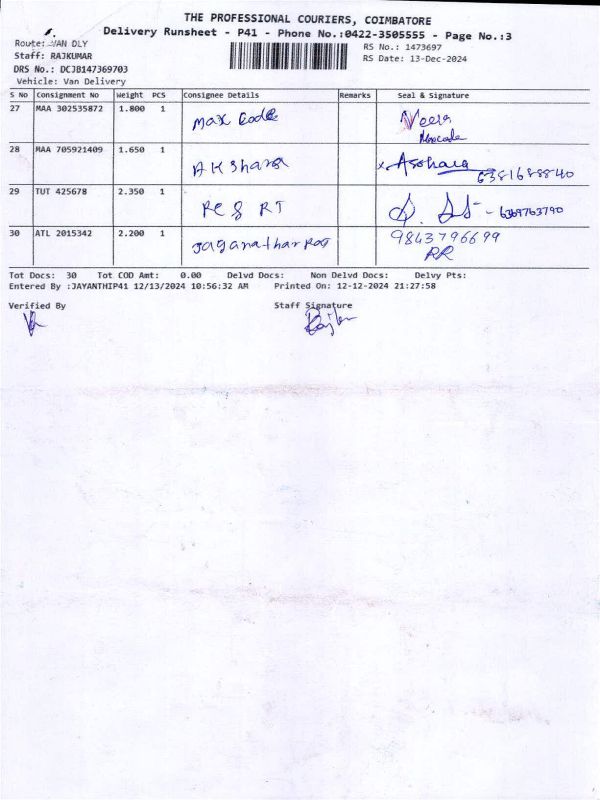 THE PROFESSIONAL COURIERS, COIMBATORE
Delivery Runsheet - P41 - Phone No.:0422-3505555 - Page No.:3
Route: VAN DLY
RS No.: 1473697
Staff: RAJKUMAR
RS Date: 13-Dec-2024
DRS No.: DCJB147369703
Vehicle: Van Delivery
S No Consignment No Weight PCS Consignee Details Remarks Seal & Signature
27 MAA 302535872 1.800 1 Max Code Veera
Maxcode
28 MAA 705921409 1.650 1 AKShara
6381688840
29 TUT 425678 2.350 1 RCS RT - 6369763790
30 ATL 2015342 2.200 1 9843796699
RR
Tot Docs: 30 Tot COD Amt: 0.00 Delvd Docs: Non Delvd Docs: Delvy Pts:
Entered By :JAYANTHIP41 12/13/2024 10:56:32 AM Printed On: 12-12-2024 21:27:58
Verified By Staff Signature